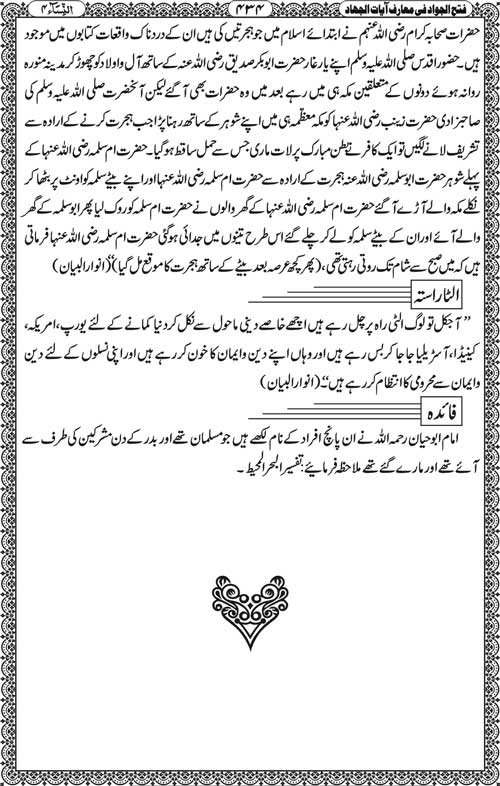 فتح الجواد فی معارف آیات الجهاد
۴۳۴
النِّسَآء ۴
حضرات صحابہ کرام رضی اللہ عنہم نے ابتدائے اسلام میں جو ہجرتیں کی ہیں ان کے دردناک واقعات کتابوں میں موجود
ہیں۔ حضور اقدس صلی اللہ علیہ وسلم اپنے یار غار حضرت ابوبکر صدیق رضی اللہ عنہ کے ساتھ آل و اولاد کو چھوڑ کر مدینہ منورہ
روانہ ہوئے دونوں کے متعلقین مکہ ہی میں رہے بعد میں وہ حضرات بھی آگئے لیکن آنحضرت صلی اللہ علیہ وسلم کی
صاحبزادی حضرت زینب رضی اللہ عنہا کو مکہ معظمہ ہی میں اپنے شوہر کے ساتھ رہنا پڑا جب ہجرت کرنے کے ارادہ سے
تشریف لانے لگیں تو ایک کافر نے بطن مبارک پر لات ماری جس سے حمل ساقط ہوگیا۔ حضرت ام سلمہ رضی اللہ عنہا کے
پہلے شوہر حضرت ابوسلمہ رضی اللہ عنہ ہجرت کے ارادہ سے حضرت ام سلمہ رضی اللہ عنہا اور اپنے بیٹے سلمہ کو اونٹ پر بٹھا کر
نکلے مکہ والے آڑے آگئے حضرت ام سلمہ رضی اللہ عنہا کے گھر والوں نے حضرت ام سلمہ کو روک لیا پھر ابوسلمہ کے گھر
والے آئے اور ان کے بیٹے سلمہ کو لے کر چلے گئے اس طرح تینوں میں جدائی ہوگئی حضرت ام سلمہ رضی اللہ عنہا فرماتی
ہیں کہ میں صبح سے شام تک روتی رہتی تھی، (پھر کچھ عرصہ بعد بیٹے کے ساتھ ہجرت کا موقع مل گیا) (انوار البیان)
الٹا راستہ
”آجکل تو لوگ الٹی راہ پر چل رہے ہیں اچھے خاصے دینی ماحول سے نکل کر دنیا کمانے کے لئے یورپ، امریکہ،
کینیڈا، آسٹریلیا جا جا کر بس رہے ہیں اور وہاں اپنے دین و ایمان کا خون کر رہے ہیں اور اپنی نسلوں کے لئے دین
و ایمان سے محرومی کا انتظام کر رہے ہیں“۔ (انوار البیان)
فائدہ
امام ابوحیان رحمہ اللہ نے ان پانچ افراد کے نام لکھے ہیں جو مسلمان تھے اور بدر کے دن مشرکین کی طرف سے
آئے تھے اور مارے گئے تھے ملاحظہ فرمائیے: تفسیر البحر المحیط۔